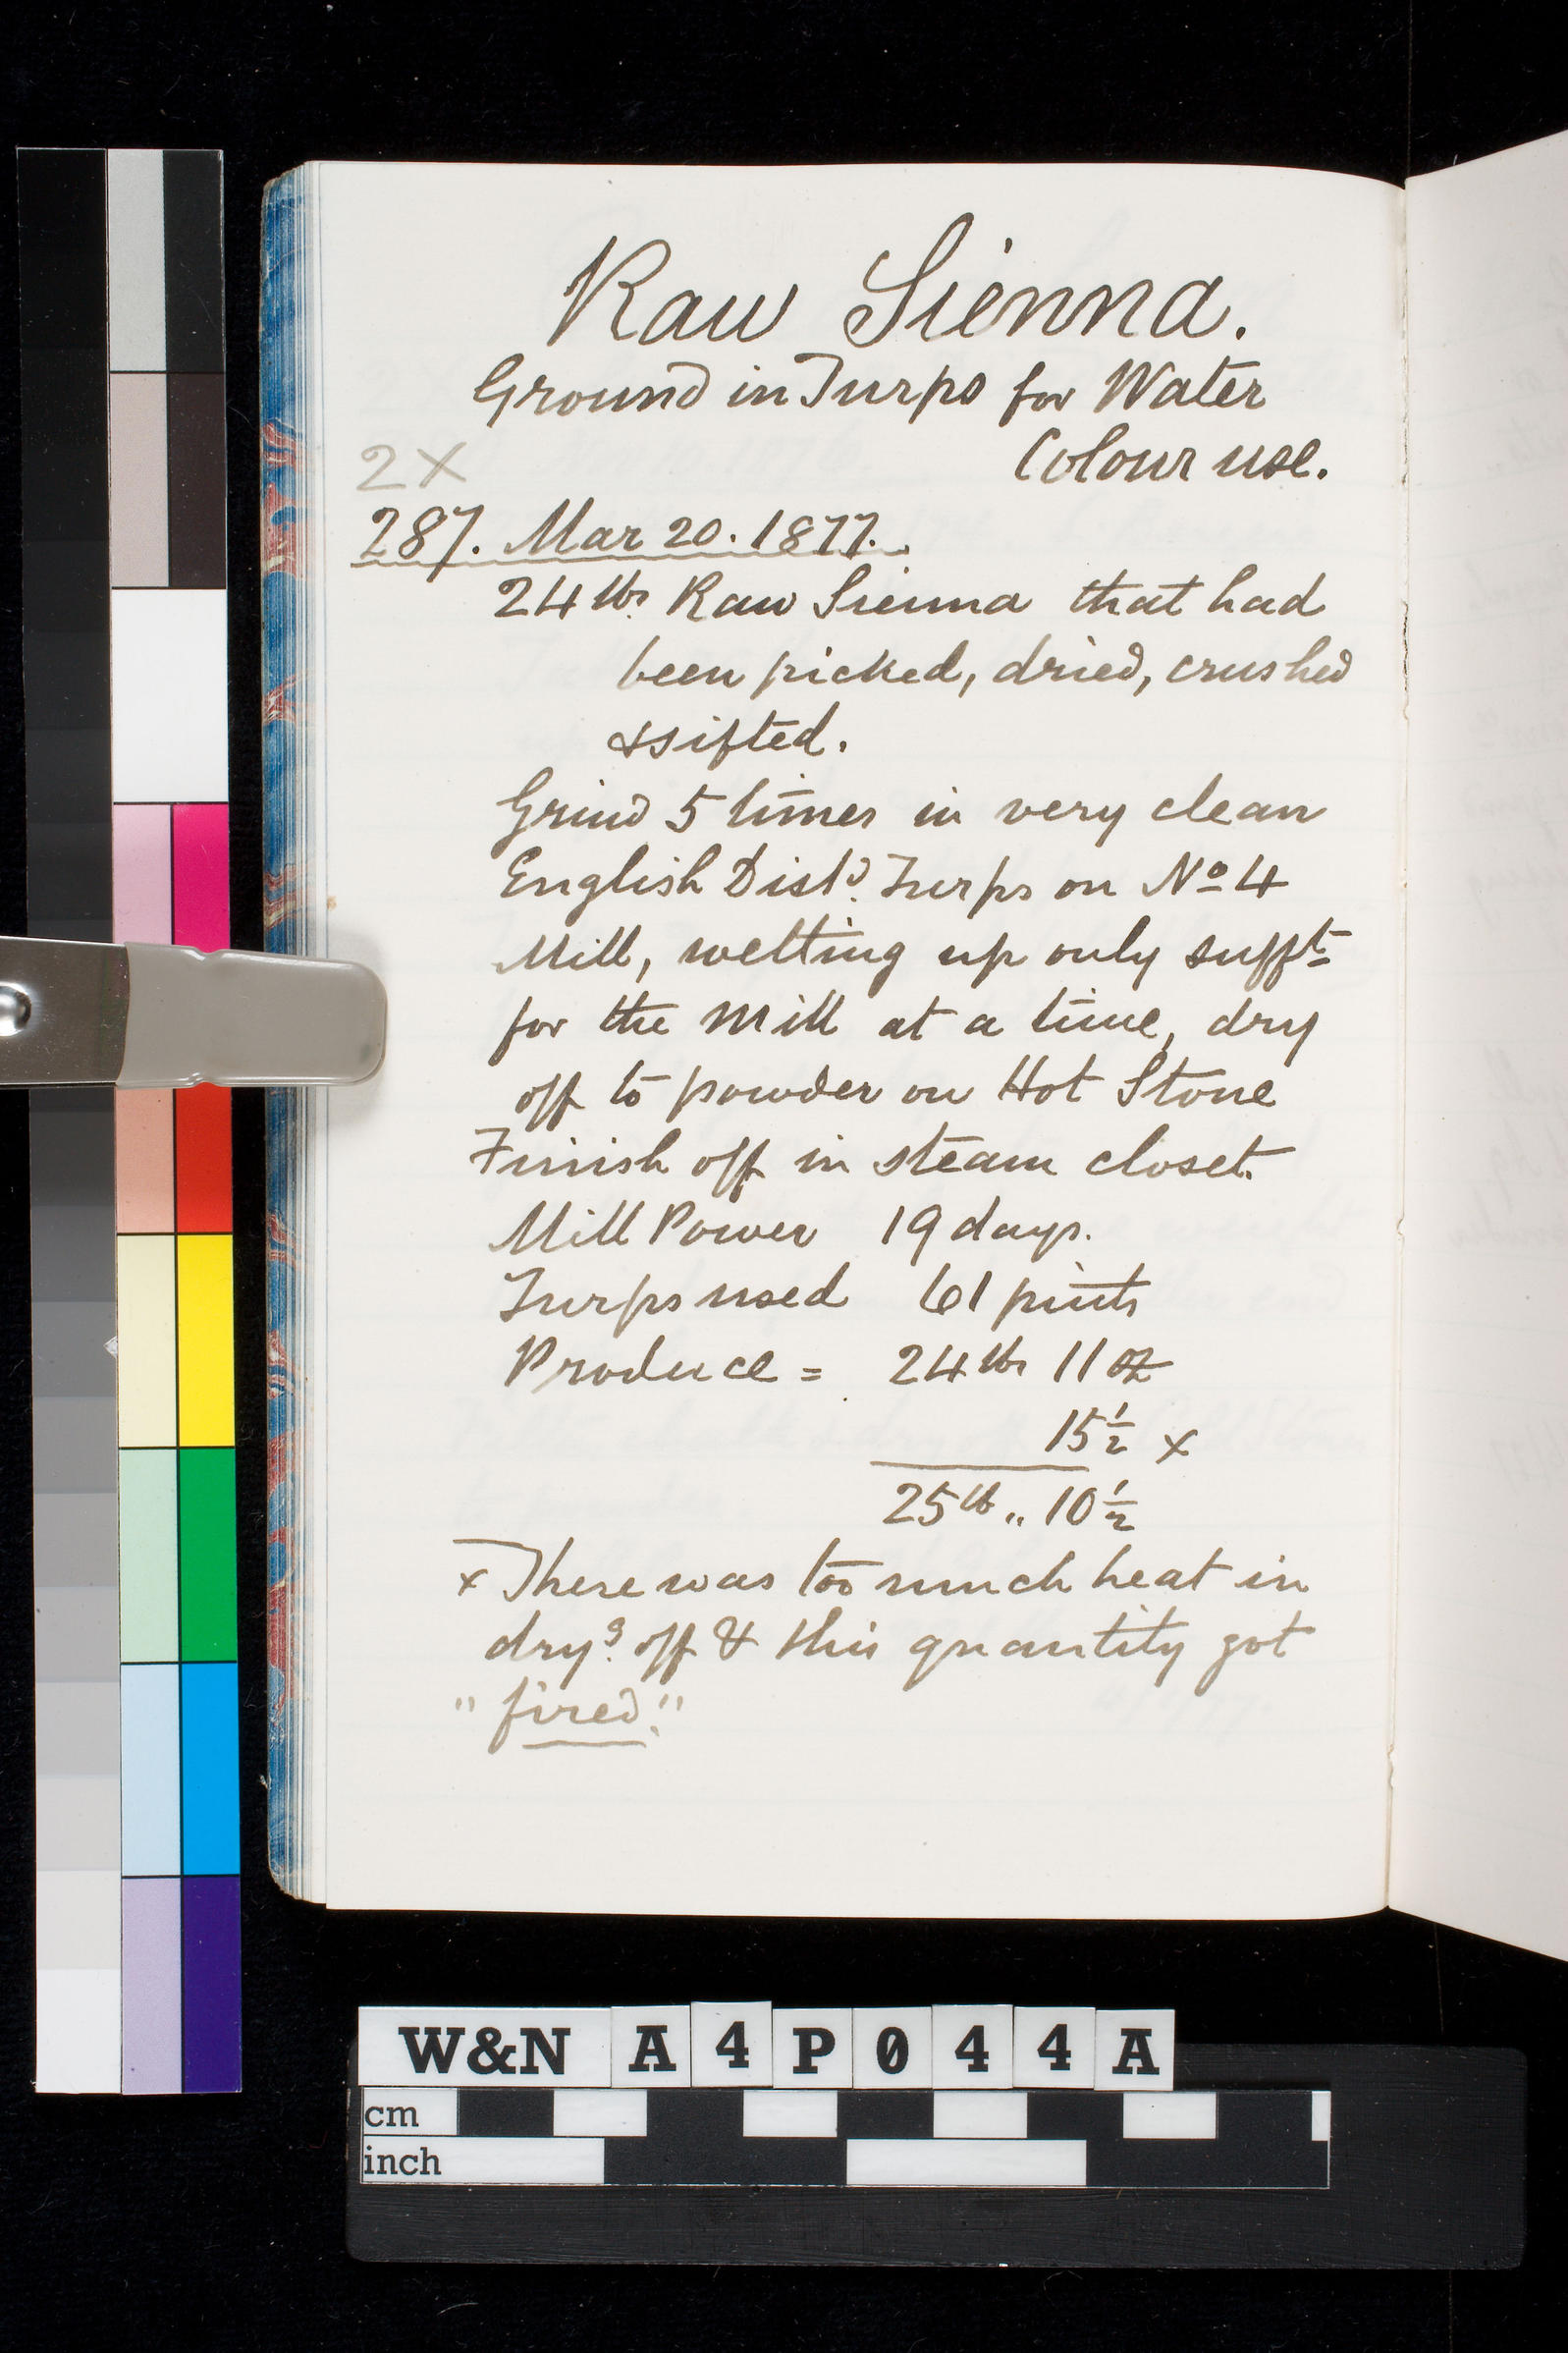 Raw Sienna.
Ground in Turps for Water
Colour use.
2X
287. Mar 20. 1877.
24 lbs Raw Sienna that had
been picked, dried, crushed
& sifted.
Grind 5 times in very clean
English Distd. Turps on No 4
Mill, wetting up only sufft
for the Mill at a time, dry
off to powder on Hot Stone
Finish off in steam closet.
Mill Power 19 days.
Turps used 61 pints
Produce = 24 lbs 11 oz
15 1/2 x
25 lb .. 10 1/2
x There was too much heat in
dryg. off & this quantity got
"fired."
W&N A4P044A
cm
inch